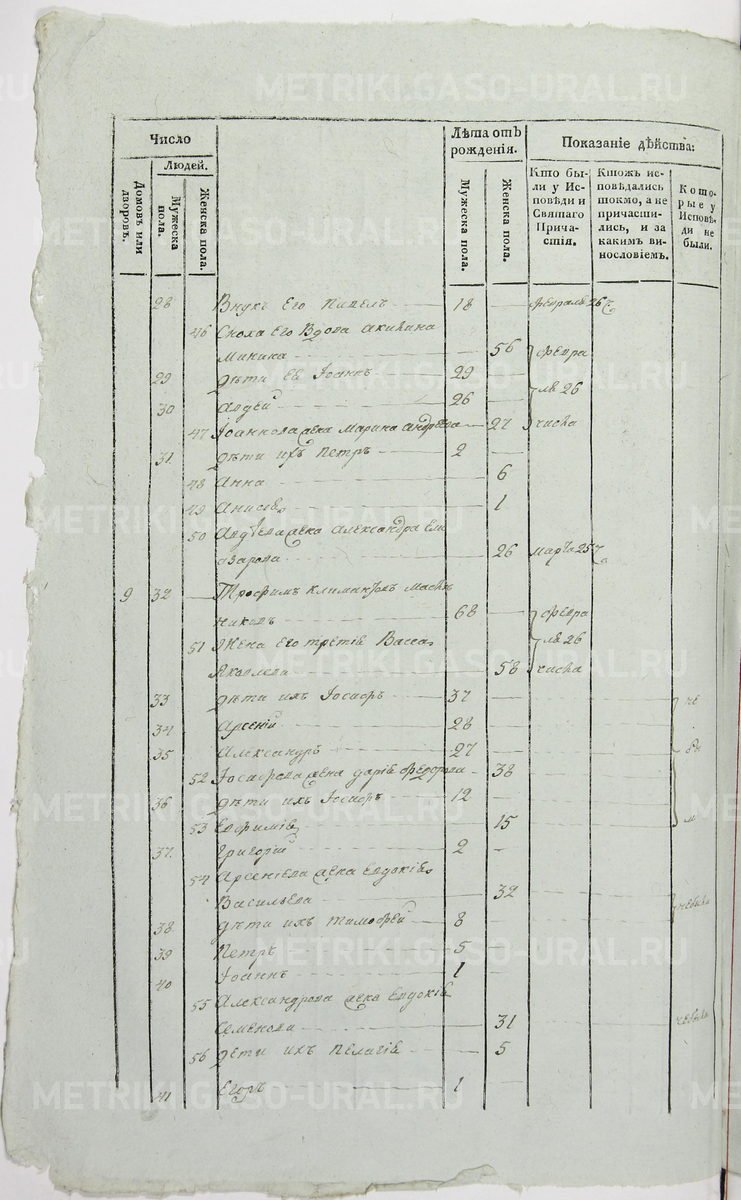 METRIKI.GASO-URAL.RU
Число
Лѣта отъ рожденія.
Показаніе дѣйства:
Людей.
Домовъ или дворовъ.
Мужеска пола.
Женска пола.
Мужеска пола.
Женска пола.
Кто бы-
ли у Ис-
повѣди и
Святаго
Прича-
стія.
Ктожъ ис-
повѣдались
токмо, а не
причасти-
лись, и за
какимъ ви-
нословіемъ.
Кото-
рые у
Исповѣ-
ди не
были.
28 Внукъ Его Павелъ 18 февраль 26
46 Сноха Его Вдова
Минина 56 февра
29 дѣти Ея Іоаннъ 29
ля 26
30 Авдей 26
47 Іоаннова жена Марина Андреева 27 числа
31 дѣти ихъ Петръ 2
48 Анна 6
49 1
50 Авдѣева жена Александра Ели
азарова 26 марта 25
9 32 Трофимъ
68 февра
51 Жена Его третія Васса
ля 26
Яковлева 58 числа
33 дѣти ихъ Іосифъ 37 не
34 Арсеній 28
35 Александръ 27 бы
52 Іосифова жена Дарія Федорова 38
36 дѣти ихъ Іосифъ 12
53 Евфимія 15
37 Григорій 2
54 Арсеніева жена Евдокія
Васильева 32 небыли
38 дѣти ихъ Тимофей 8
39 Петръ 5
40 Іоаннъ 1
55 Александрова жена Евдокія
Семенова 31 небыли
56 дети ихъ Пелагія 5
41 Егоръ 1